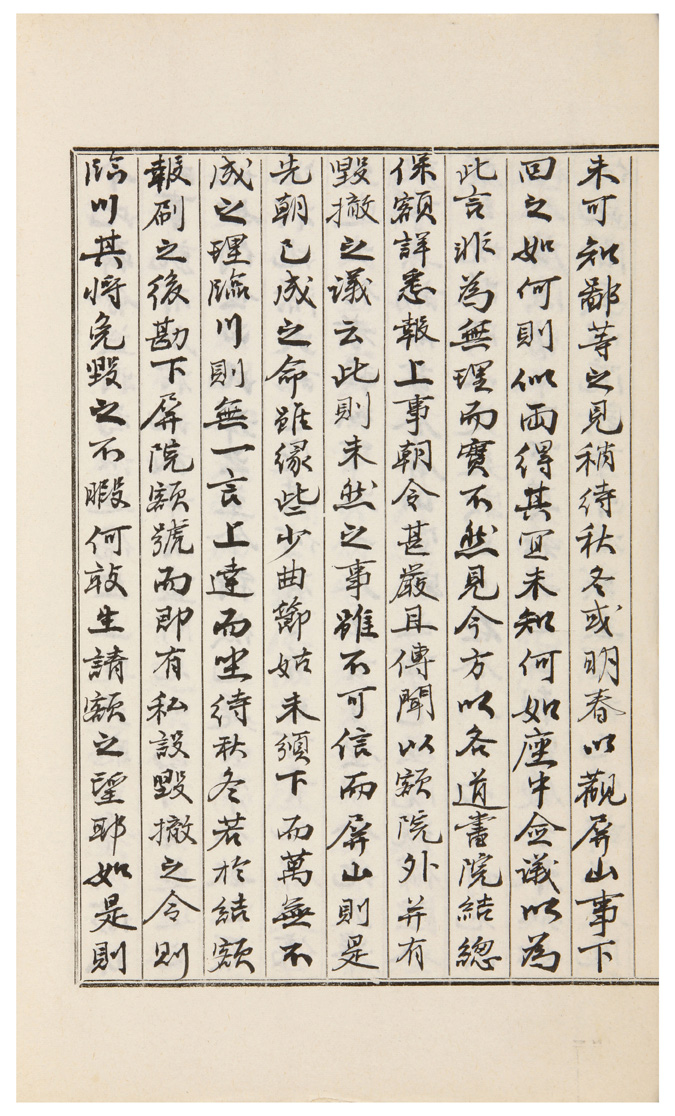 未可知鄙等之見稍待秋冬或明春以觀屏山事下
回之如何則似兩得其宜未知何如座中僉議以為
此言非為無理而實不然見今方以各道書院結總
保額詳悉報上事朝令甚嚴且傳聞以額院外并有
毀撤之議云此則未然之事雖不可信而屏山則是
先朝已成之命雖緣些少曲節姑未頒下而萬無不
成之理臨川則無一言上達而坐待秋冬若於結額
報刷之後勘下屏院額號而即有私設毀撤之令則
臨川其將免毀之不暇何敢生請額之望耶如是則